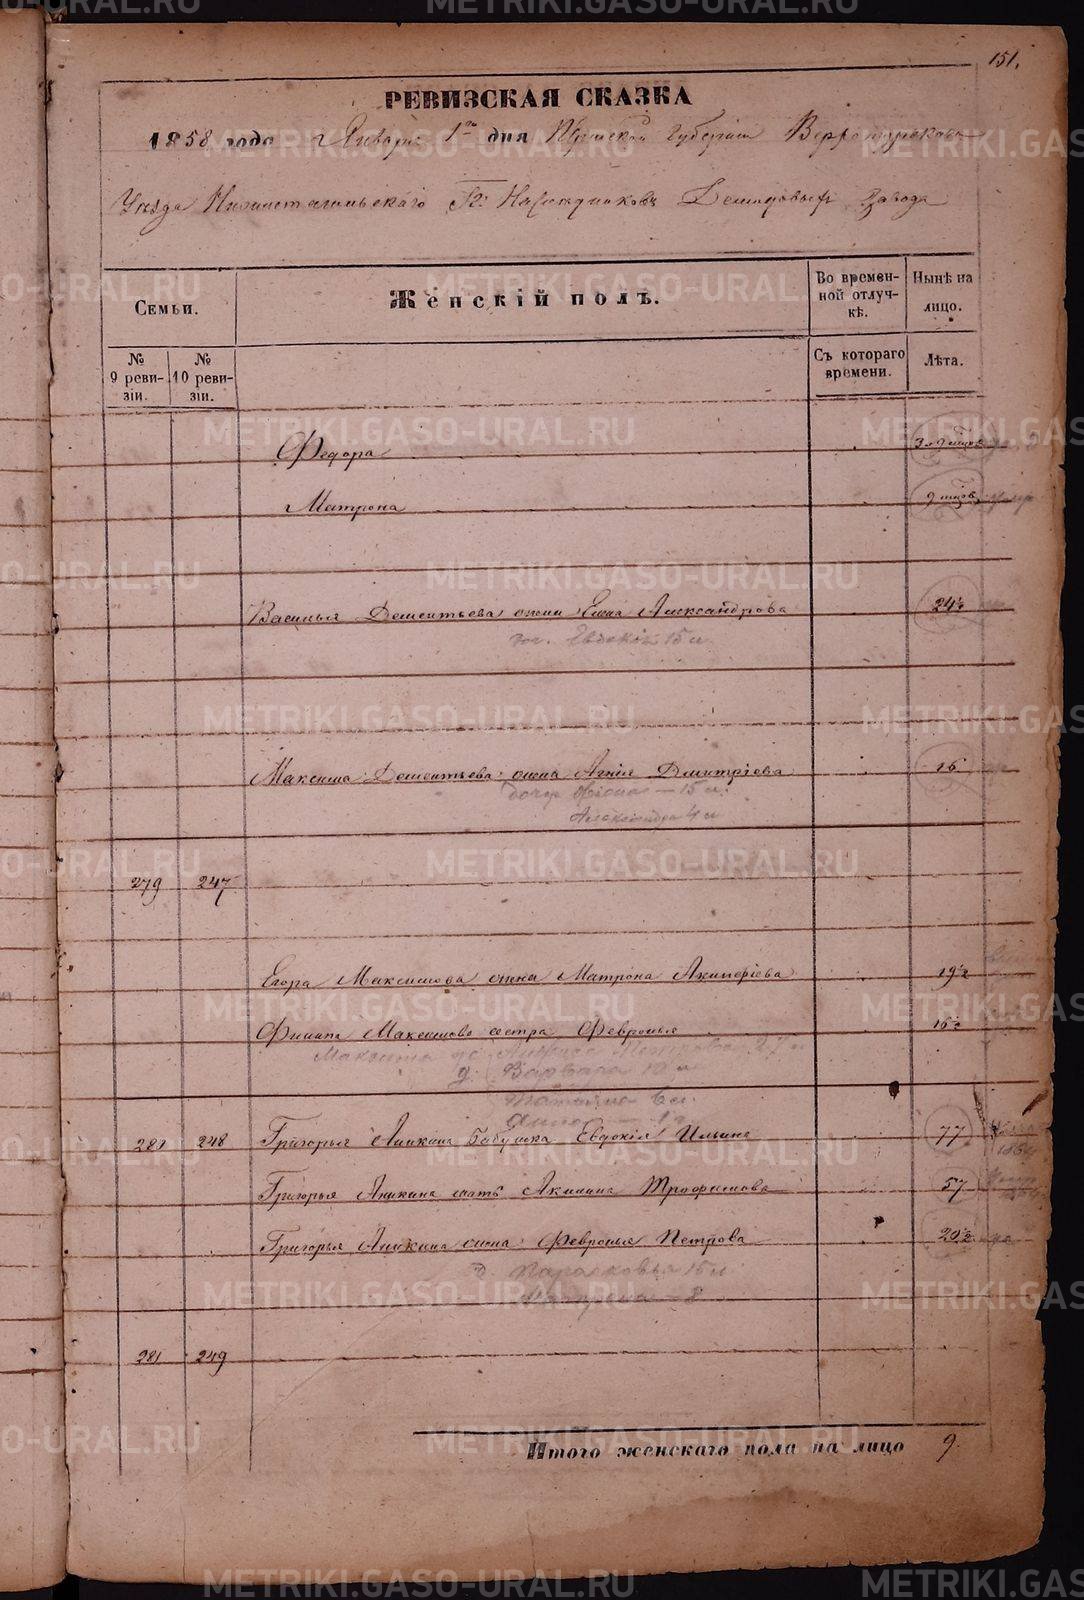 151.
РЕВИЗСКАЯ СКАЗКА
1858 года Января 1го дня Пермской Губернии Верхотурскаго
Уѣзда Нижнетагильскаго Гг: Наслѣдниковъ Демидовыхъ Завода
Семьи.
Женскій полъ.
Во времен-
ной отлуч-
кѣ.
Нынѣ на
лицо.
№
9 реви-
зіи.
№
10 реви-
зіи.
Съ котораго
времени.
Лѣта.
Федора
Матрона
Василья Дементьева жена Елена Александрова 24½
15 л
Максима Дементьева жена Агнія Дмитріева 26
дочь 15 л.
Александра 4 л
279 247
Егора Максимова жена Матрона Акинфіева 19½
Филипа Максимова сестра Февронья 16½
Максима 27 л
д. Варвара 10 л
Татьяна 6 л.
248 Григорья Аникина бабушка Евдокія Ильина 77
Григорья Аникина мать Акилина Трофимова 57
Григорья Аникина жена Февронья Петрова 20½
д. Парасковья 15 л
Матрена 8
281 249
Итого женскаго пола на лицо 9.
METRIKI.GASO-URAL.RU